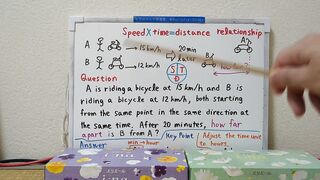 Speed X time = distance relationship
A → 15km/h → 20min A
B → 12km/h later B
S T D
how far?
Question
A is riding a bicycle at 15km/h and B is
riding a bicycle at 12km/h, both starting
from the same point in the same direction at
the same time. After 20 minutes, how far
apart is B from A?
Key Point Adjust the time unit
to hours.
Answer
min → hour